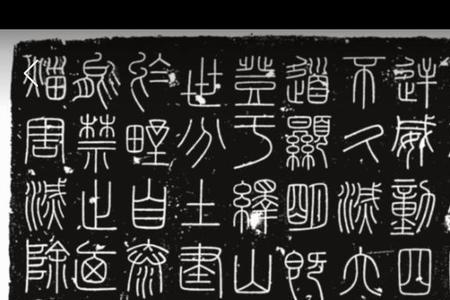 逆威動四
不久滅六
道顯明既
登于繹山
世分土建
於野自泰
能禁止迺
災害滅除